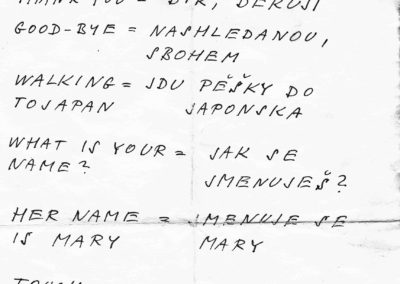 THANK YOU = DÍK, DĚKUJI
GOOD-BYE = NASHLEDANOU,
SBOHEM
WALKING = JDU PĚŠKY DO
TOJAPAN JAPONSKA
WHAT IS YOUR = JAK SE
NAME? JMENUJEŠ?
HER NAME = JMENUJE SE
IS MARY MARY